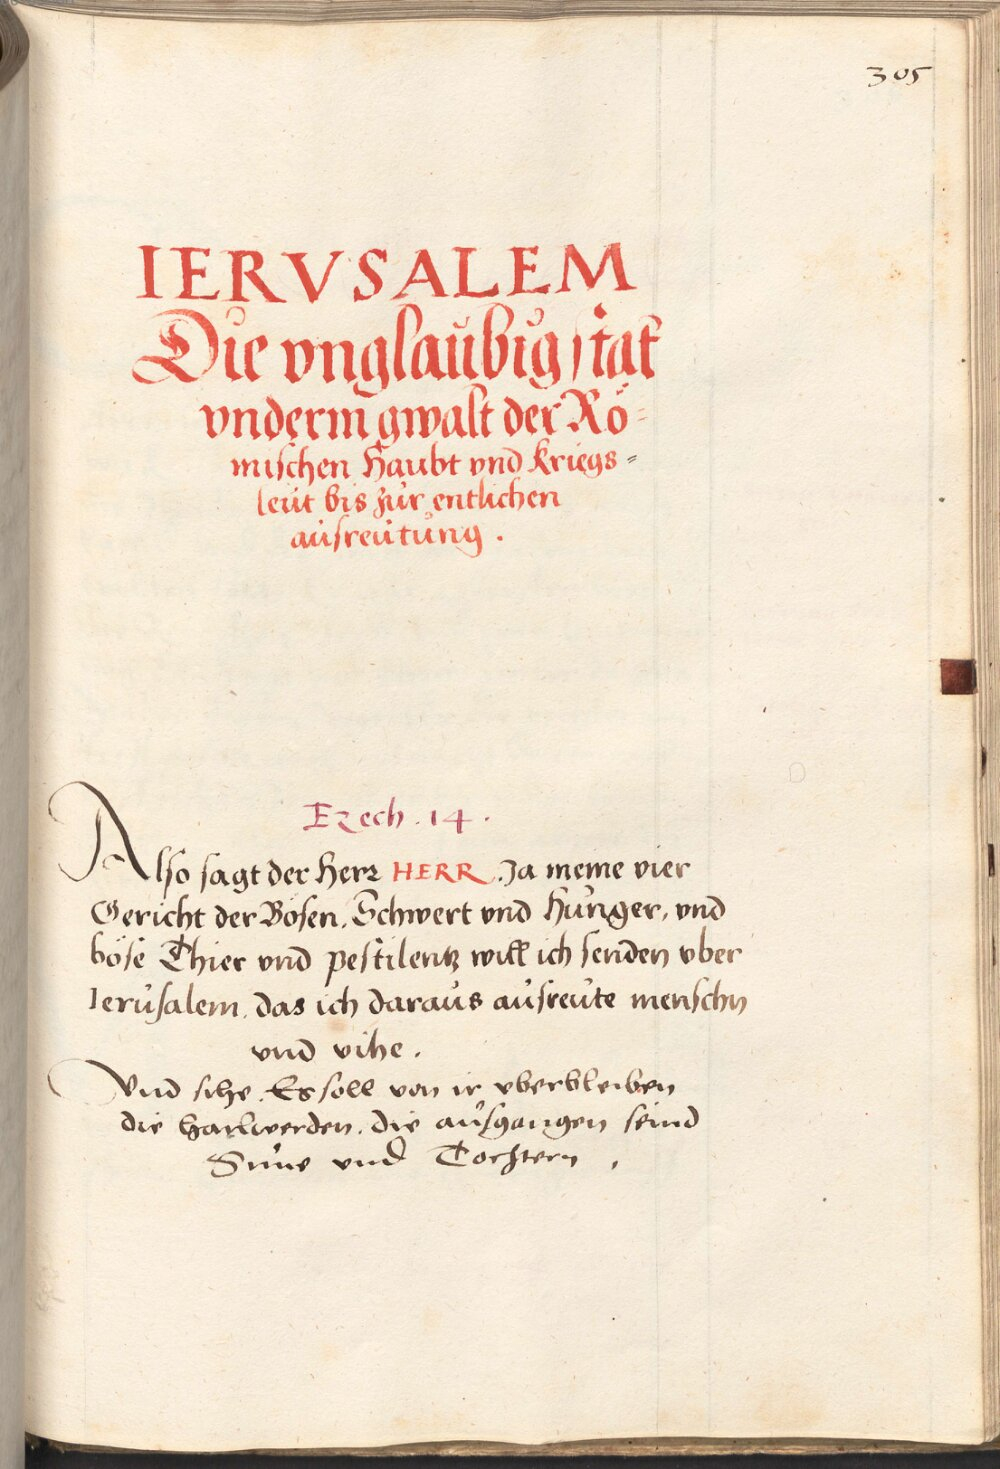 305
IERVSALEM
Die vnglaubig stat
vnderm gwalt der Rö-
mischen Haubt vnd Kriegs-
leut bis zur entlichen
ausreutung .
Ezech . 14 .
Also sagt der Herr HERR . Ja meine vier
Gericht der Bösen, Schwert vnd Hunger, vnd
böse Thier vnd pestilentz will ich senden vber
Ierusalem, das ich daraus ausreute menschn
vnd vihe .
Vnd sihe . Es soll von ir vberbleiben
die werden, die ausgangen seind
Süne vnd Tochtern .